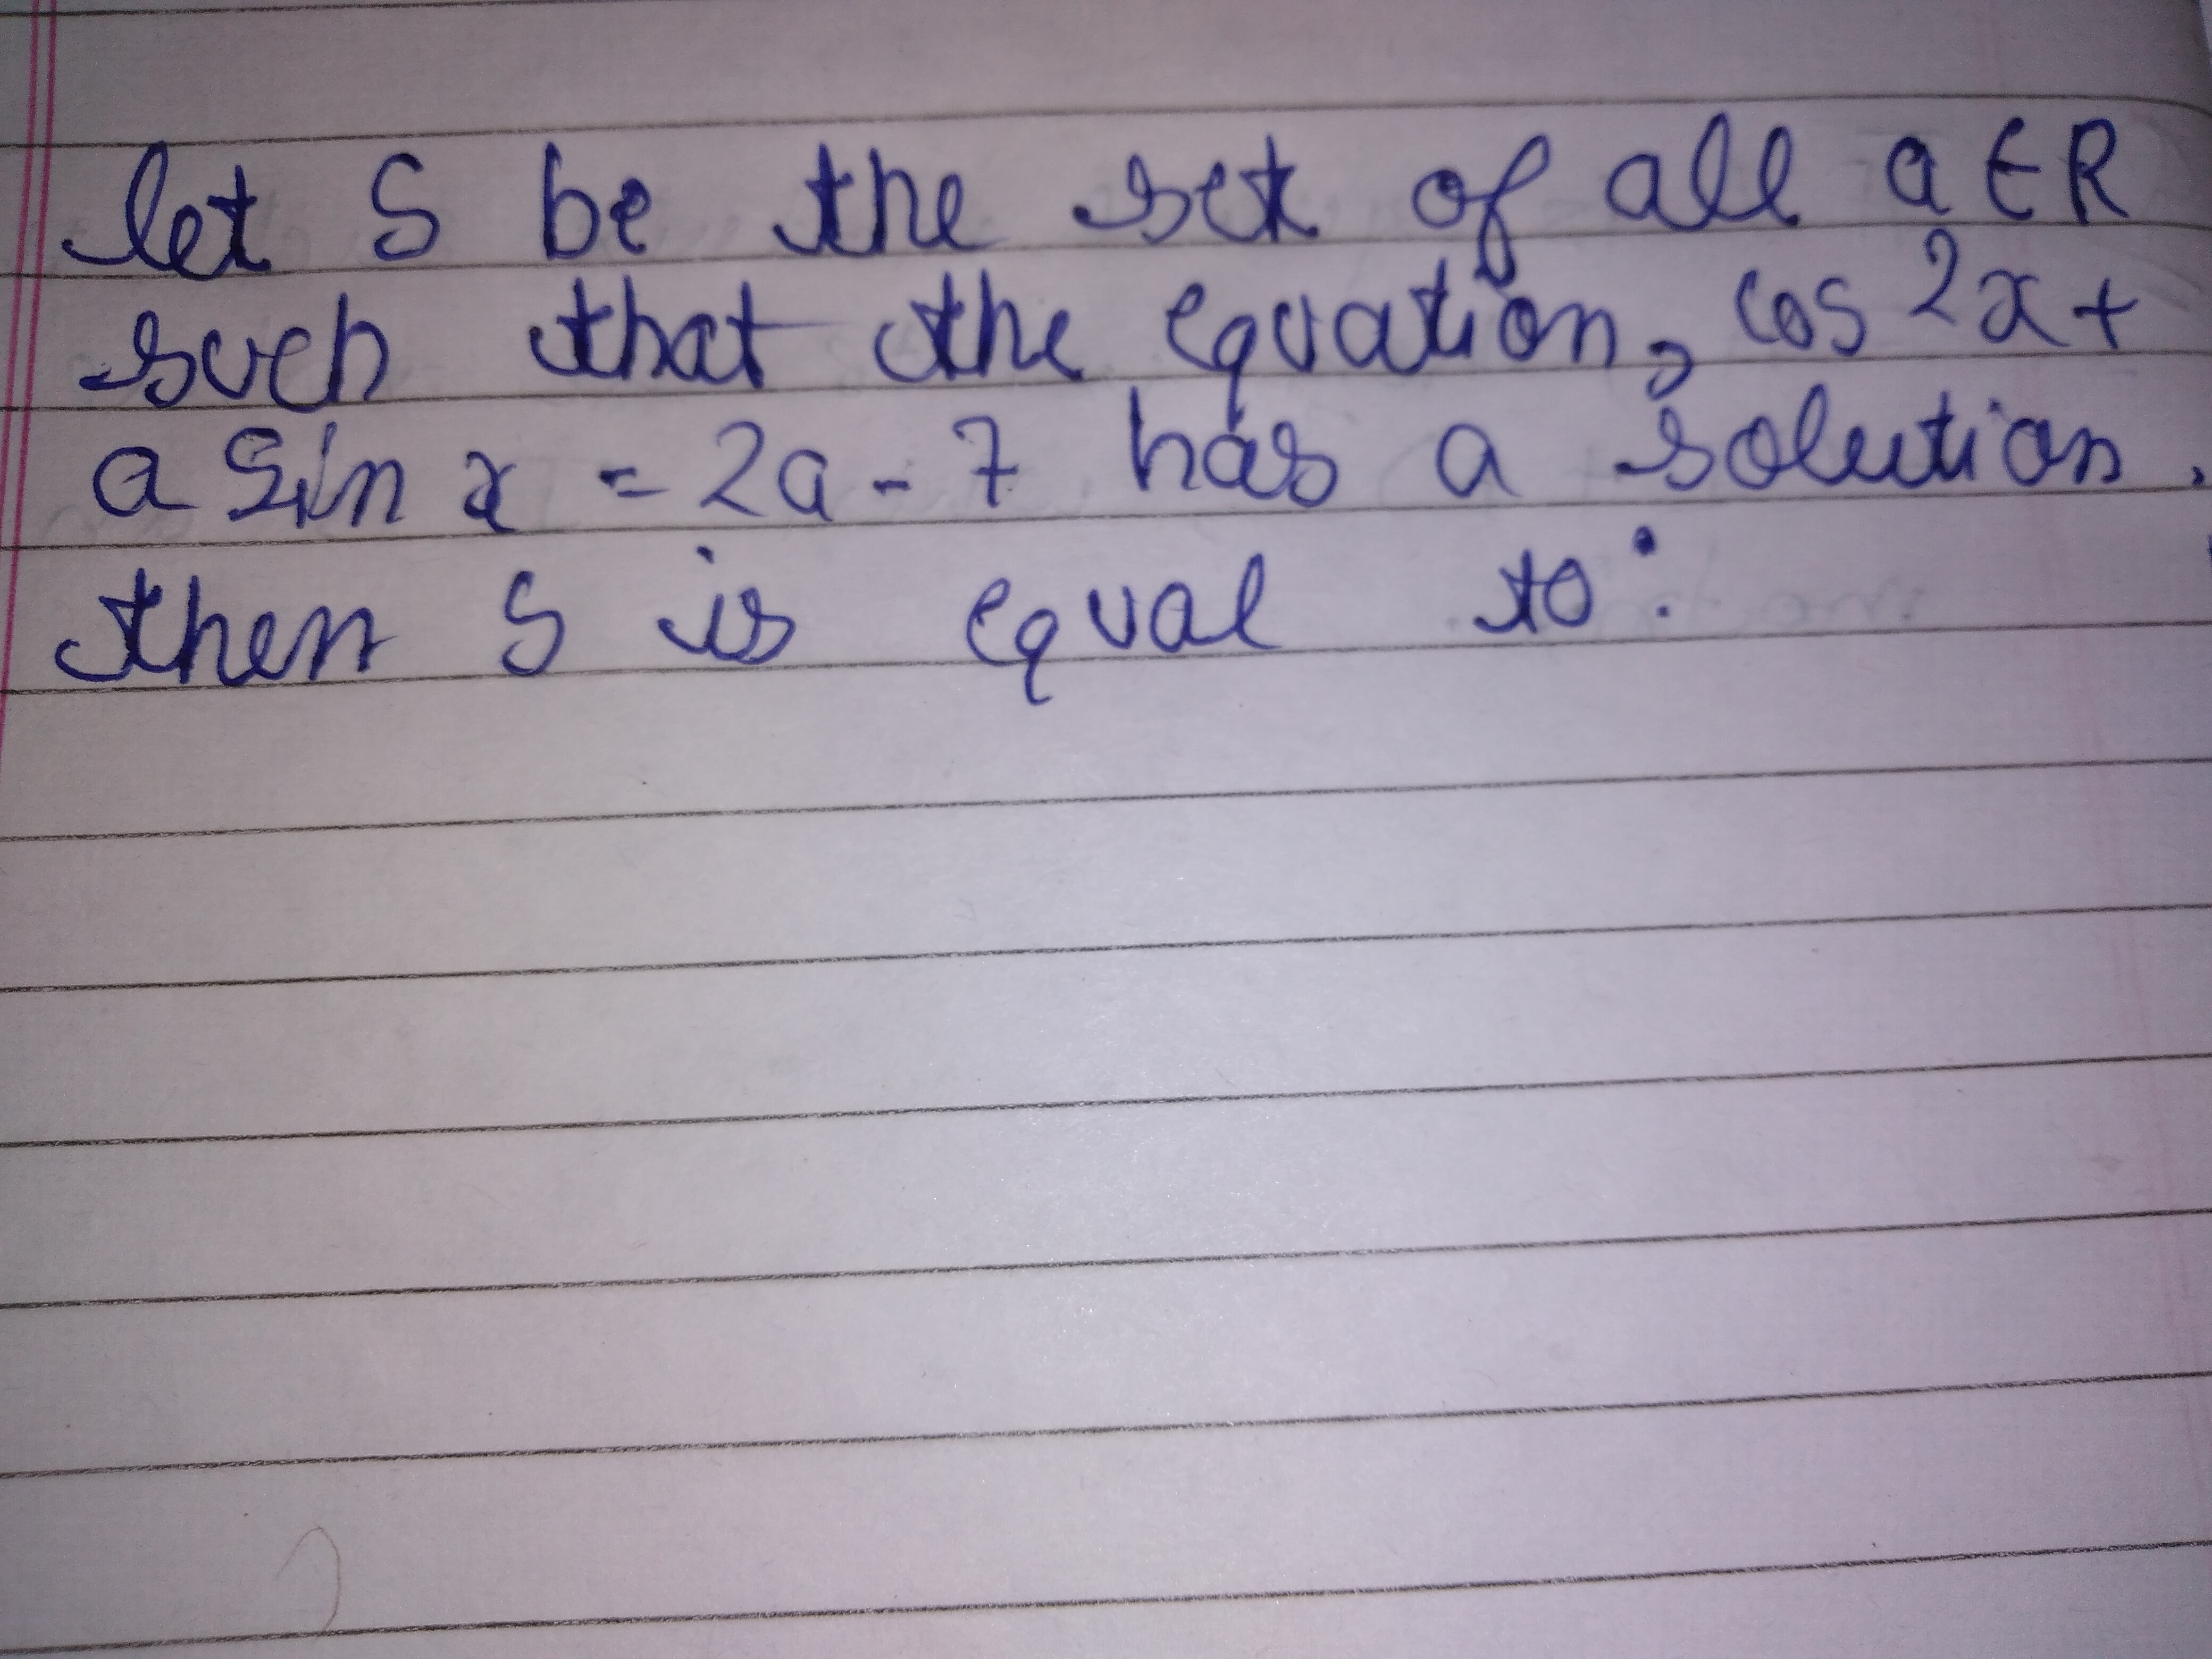 let S be the set of all a ∈ R
such that the equation, cos 2x +
a Sin x = 2a - 7 has a solution.
then S is equal to :